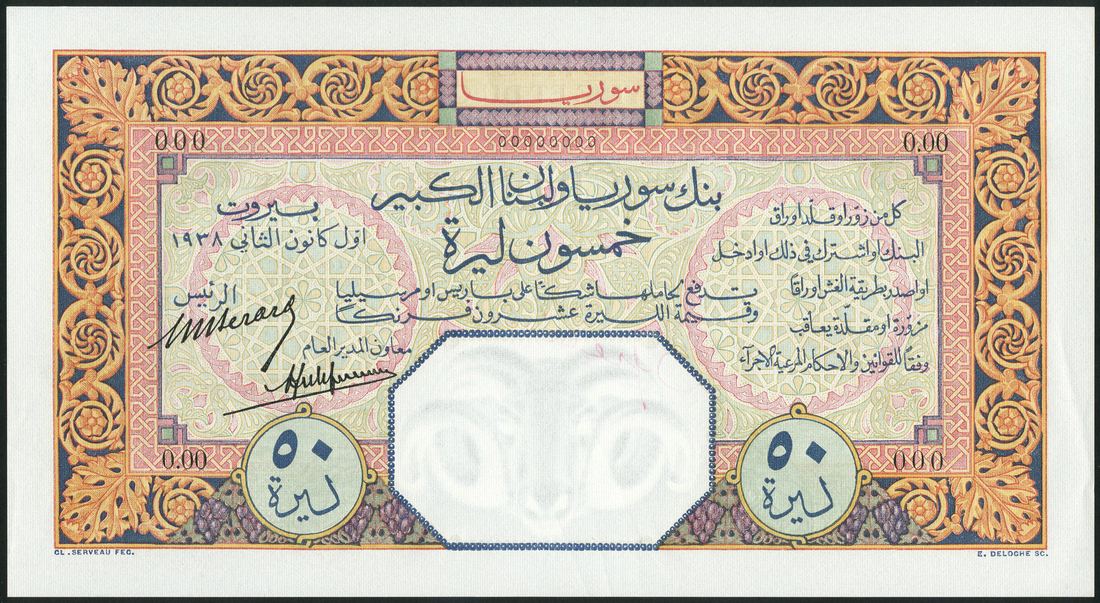 سوريا
000
00000000
0.00
بنك سوريا ولبنان الكبير
خمسون ليرة
بيروت
اول كانون الثاني ١٩٣٨
تدفع لحاملها شكًا على باريس او مرسيليا
وقيمة الليرة عشرون فرنكًا
كل من زوّر او قلّد اوراق
البنك او اشترك في ذلك او ادخل
او اصدر بطريقة الغش اوراقًا
مزوّرة او مقلّدة يعاقب
وفقًا للقوانين والاحكام المرعية الاجرآء
الرئيس
معاون المدير العام
0.00
000
٥٠
ليرة
٥٠
ليرة
CL. SERVEAU FEC.
E. DELOCHE SC.